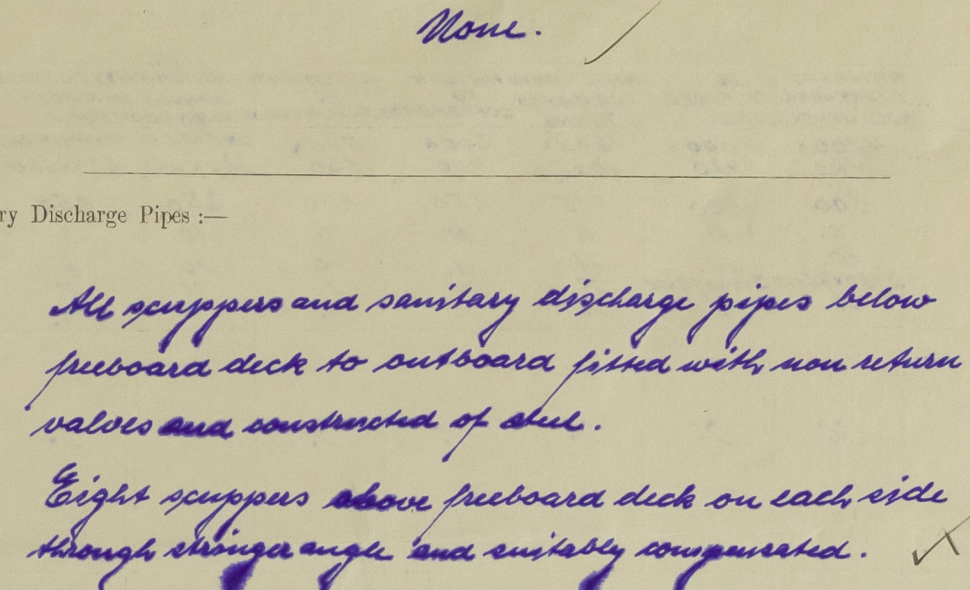 None.
ry Discharge Pipes :—
All scuppers and sanitary discharge pipes below
freeboard deck to outboard fitted with non return
valves and constructed of steel.
Eight scuppers above freeboard deck on each side
through stringer angle and suitably compensated.